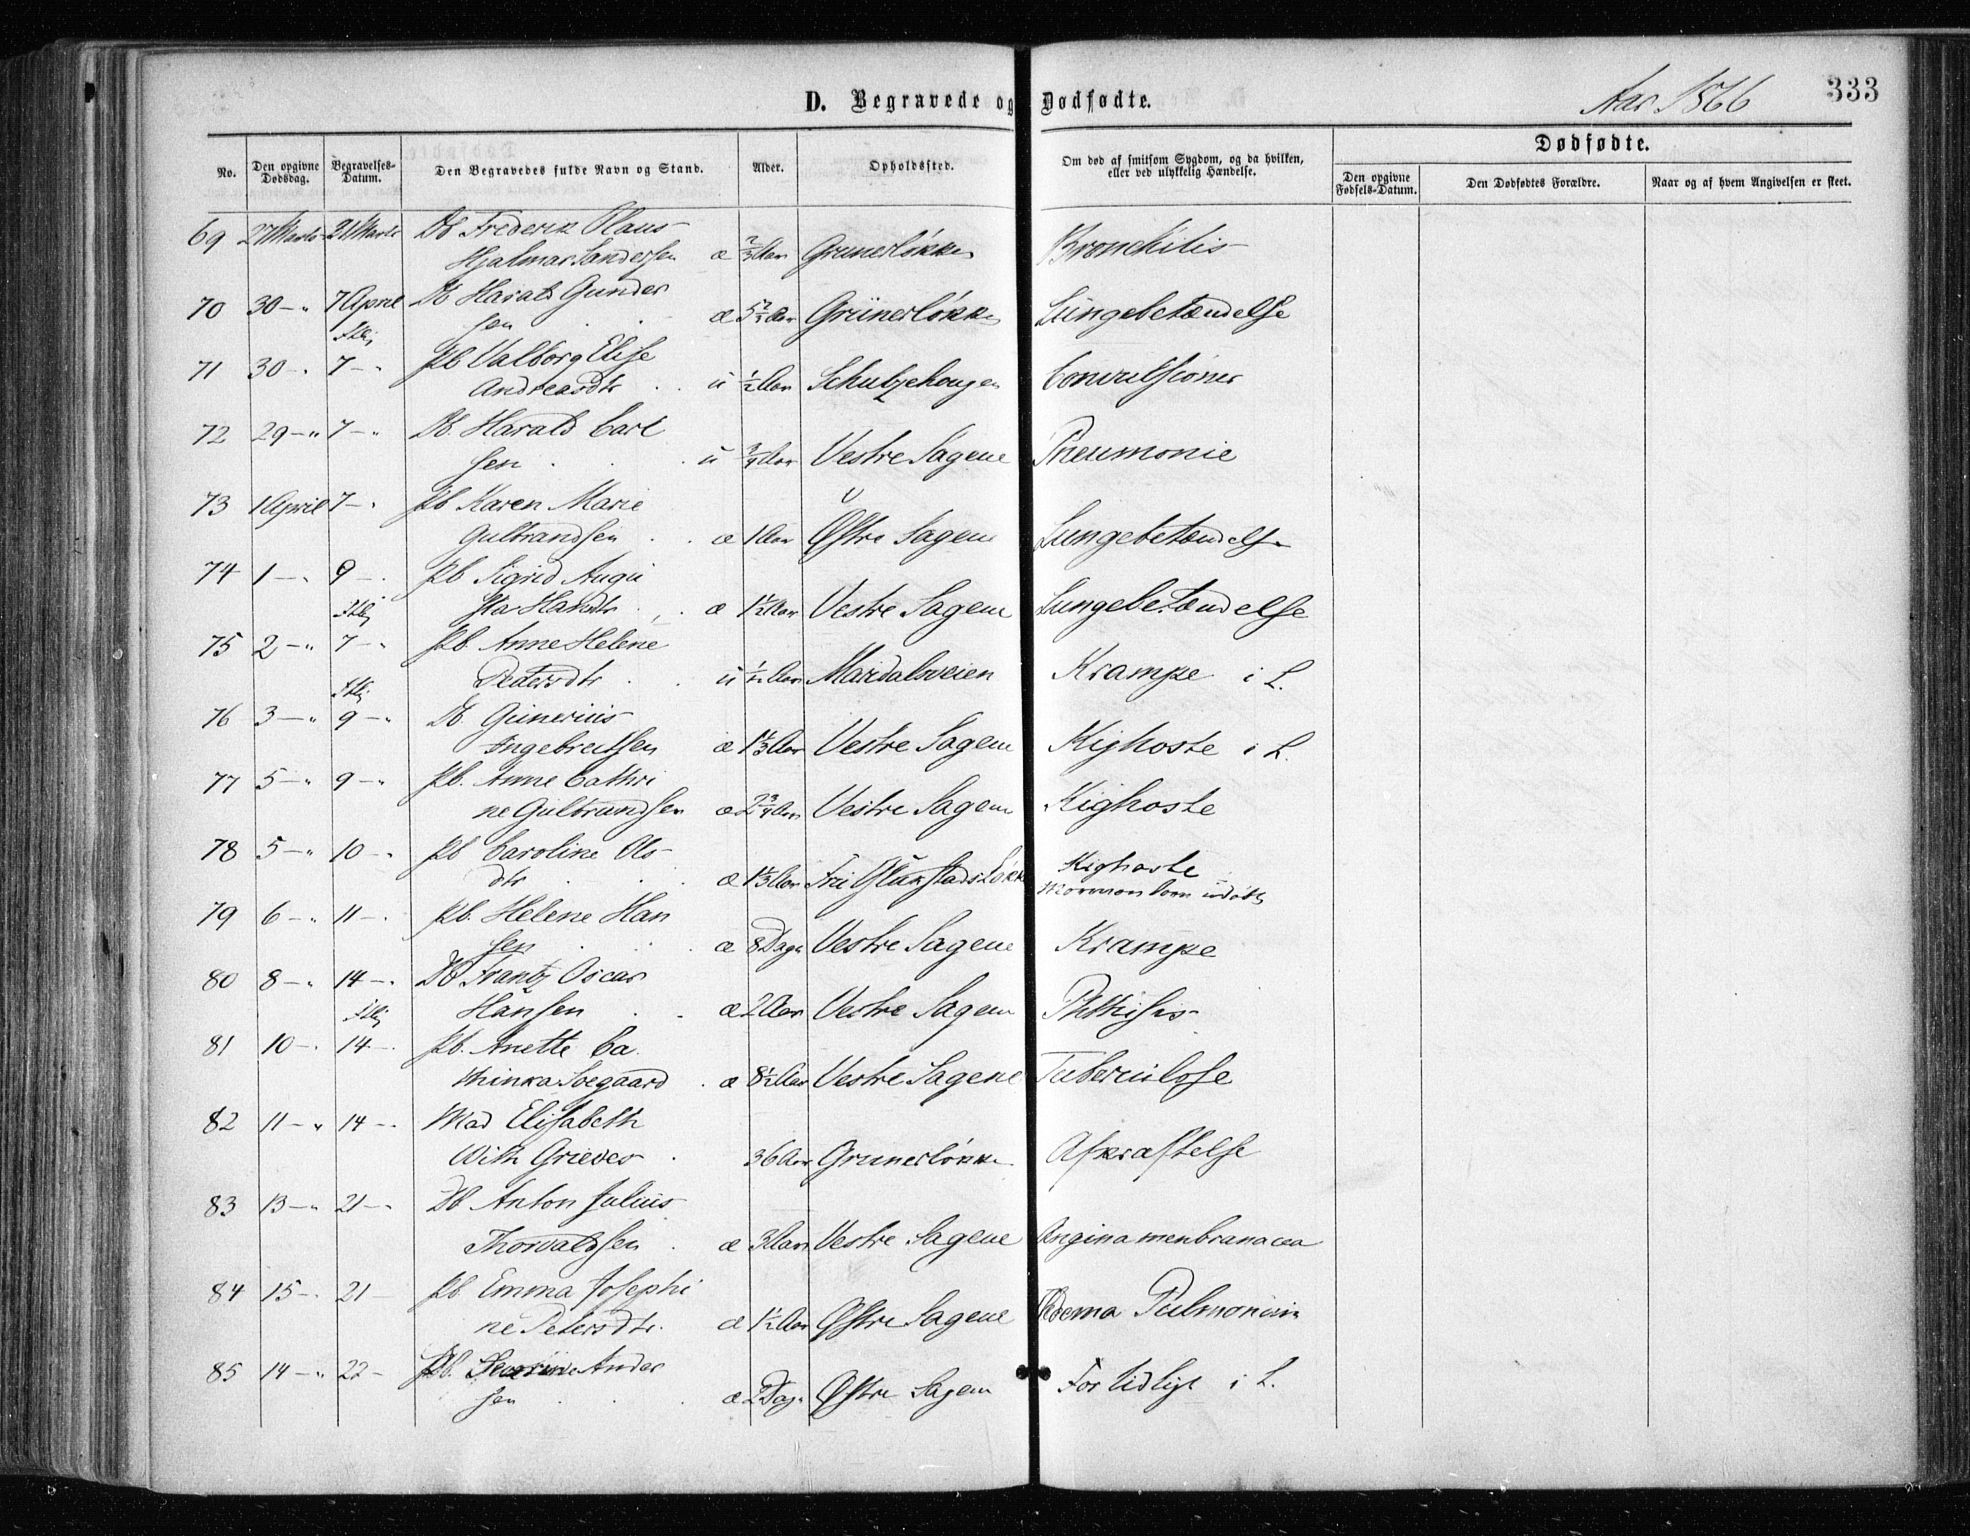 D. Begravede og Dødfødte.
Aar 1866
333
No.
Den opgivne Dødsdag.
Begravelses-Datum.
Den Begravedes fulde Navn og Stand.
Alder.
Opholdssted.
Om død af smitsom Sygdom, og da hvilken, eller ved ulykkelig Hændelse.
Dødfødte.
Den opgivne Fødsels-Datum.
Den Dødfødtes Forældre.
Naar og af hvem Angivelsen er skeet.
69 27 Marts 28 Marts Db Frederik Olaus
Hjalmar Sandersen æ 2/3 Aar Grunerløkken Bronchitis
70 30 - " 7 April Db Harald Gunder
sen æ 5 2/3 Aar Grünerløkken Lungebetændelse
71 30 - " 7 - " Pb Valborg Elise
Andreasdtr u 1/2 Aar Schultzehaugen Convulsioner
72 29 - " 7 - " Db. Harald Carl
sen u 3/4 Aar Vestre Sagene Pneumonie
73 1 April 7 - " Pb Karen Marie
Gulbrandsen æ 1 Aar Østre Sagene Lungebetændelse
74 1 - " 9 - Pb Sigrid Augu
sta Hansdtr æ 1 1/2 Aar Vestre Sagene Lungebetændelse
75 2 - " 7 - " Pb. Anne Helene
Petersdtr u 1/12 Aar Maridalsveien Krampe i L.
76 3 - " 9 - " Db Gunerius
Ingebretsen æ 1 1/3 Aar Vestre Sagene Kighoste i L.
77 5 - " 9 - " Pb. Anne Cathri
ne Gulbrandsen æ 2 3/4 Aar Vestre Sagene Kighoste
78 5 - " 10 - Pb Caroline Ols-
dtr æ 1 1/3 Aar Fru Glukstads Løkke Kighoste
Mormon barn udøbt
79 6 - " 11 - Pb. Helene Han
sen æ 8 Dage Vestre Sagene Krampe
80 8 - " 14 - Db Frantz Oscar
Hansen æ 2 Aar Vestre Sagene Phthisis
81 10 - 14 - Pb. Anette Ca
thinka Soegaard æ 8 1/2 Aar Vestre Sagene Tuberculose
82 11 - " 14 - Mad Elisabeth
With Grieves 36 Aar Grunerløkken Afkræftelse
83 13 - " 21 - " Db Anton Julius
Thorvaldsen æ 3 Aar Vestre Sagene Angina menbranacea
84 15 - 21 - Pb Emma Josephi
ne Petersdtr. æ 1 1/2 Aar Østre Sagene Oedema Pulmonum
85 14 - " 22 - Pb. Severine Ander
sen æ 2 Dage Østre Sagene For tidligt i L.